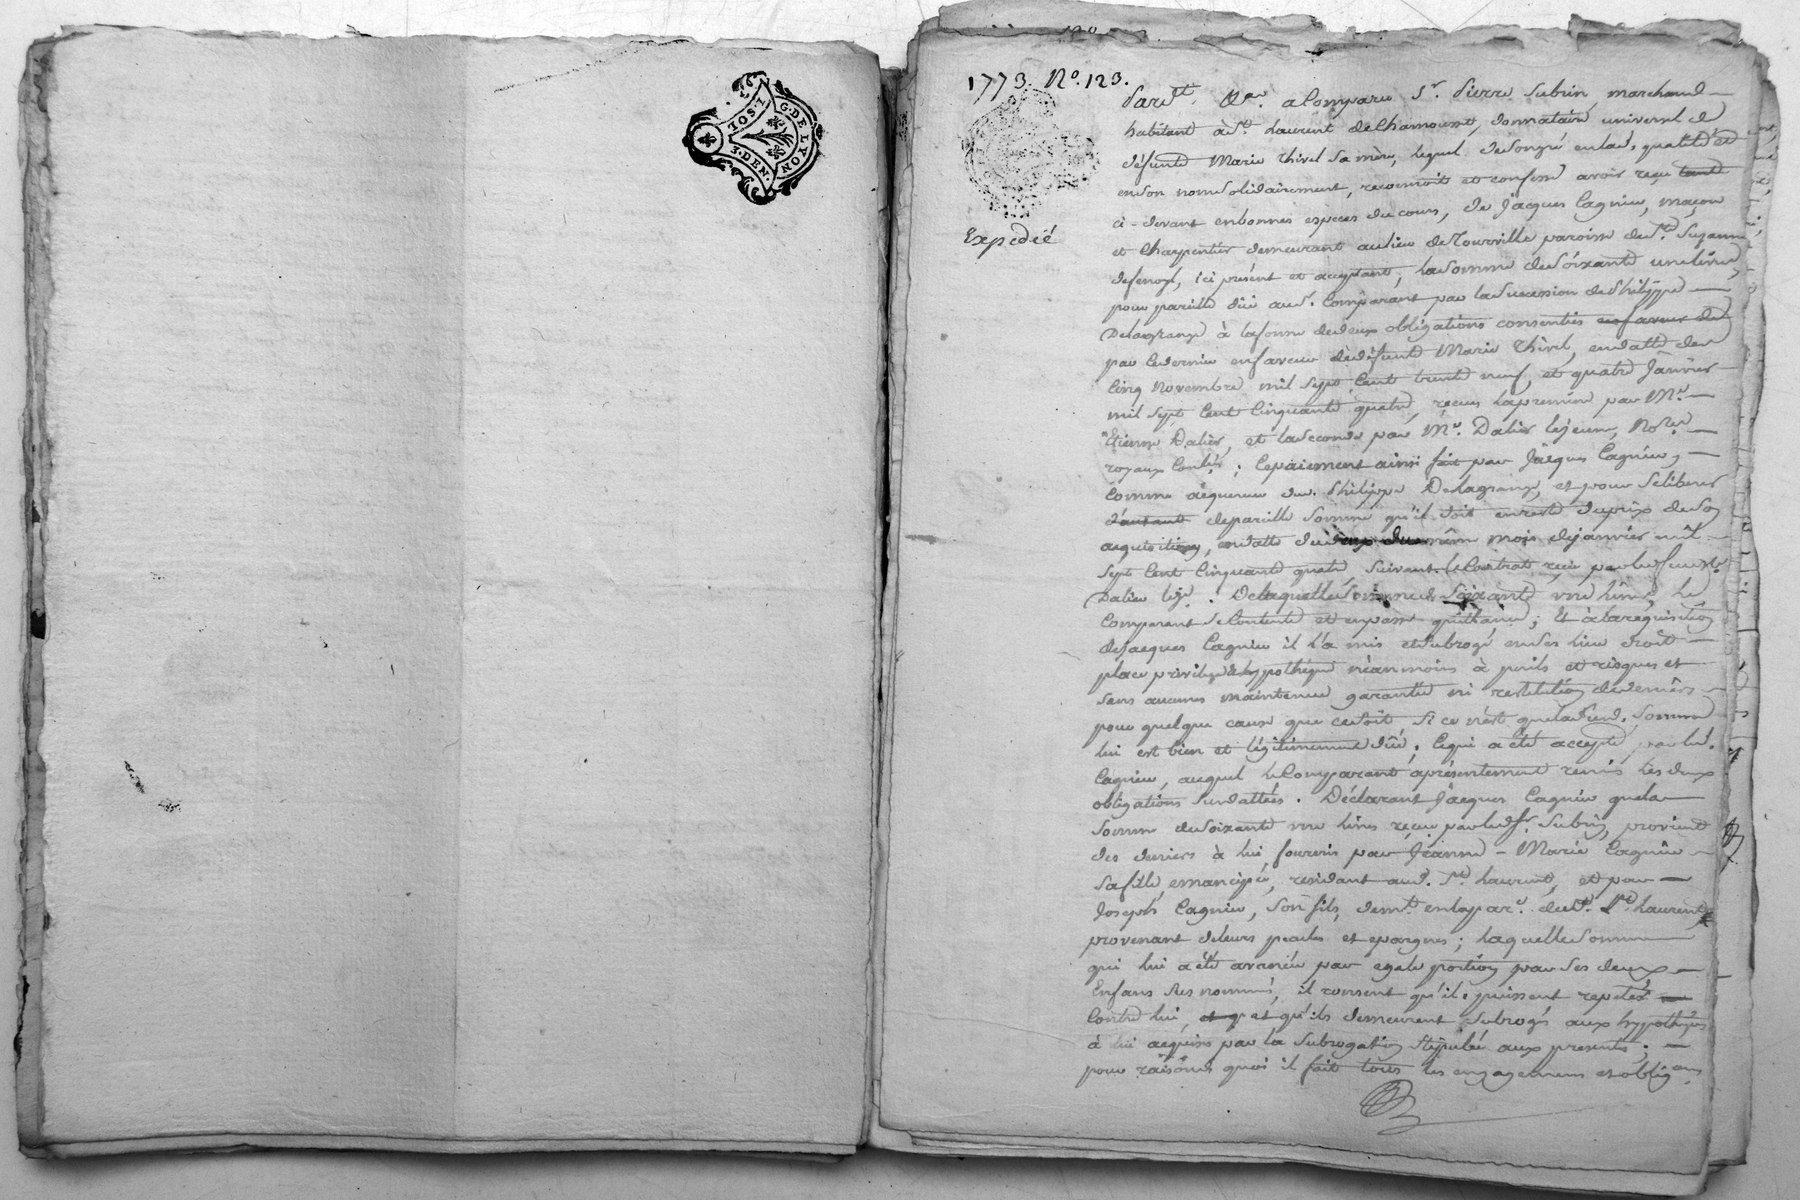 G. DE LYON
3. DEN.
1773. No. 123.
Expédié
Pardt. &a. a Comparu Sr. Pierre Subrin marchand
habitant à St. Laurent de Chamousset, donnataire universel de
défunte Marie Thivel sa mère, lequel de son gré en lad. qualité et
en son nom solidairement, reconnoit et confesse avoir reçu tant
ci-devant en bonnes especes du cours, de Jacques Cagnieu, maçon
et Charpentier demeurant au lieu de Tourville paroisse de Ste. Suzanne
ici présent et acceptant, la somme de soixante une livres,
pour pareille düe aud. Comparant par la succession de Philippe
Delagrange à la forme de deux obligations consenties en faveur de
par ce dernier en faveur de défunte Marie Thivel, en datte des
Cinq Novembre mil sept Cent trente neuf, et quatre Janvier
mil sept Cent Cinquante quatre, reçues la premiere par Me.
Etienne Dalier, et la seconde par Me. Dalier le jeune, Nores.
royaux ; Le paiement ainsi fait par Jacques Cagnieu,
Comme acquereur de Philippe Delagrange, et pour se liberer
d'autant de pareille somme qu'il doit en reste du prix de son
acquisition, en datte du même mois de janvier mil
sept Cent Cinquante quatre suivant le Contrat reçu par led.
Dalier . De laquelle somme de Soixante une livres, le
Comparant se Contente et en passe quittance ; Et à la requisition
de Jacques Cagnieu il l'a mis et subrogé en ses lieu droit
place privilege & hypotheque néanmoins à perils et risques et
sans aucune maintenue garantie ni restitution de deniers
pour quelque cause que ce soit si ce n'est que lasusd. somme
lui est bien et légitimement düe ; Ce qui a été accepté par led.
Cagnieu, auquel le Comparant a présentement remis les deux
obligations susdattées. Déclarant Jacques Cagnieu que la
somme de soixante une livres reçue par led. Sr. Subrin, provient
des deniers à lui fournis par Jeanne-Marie Cagnieu
sa fille, emancipée, residant aud. St. Laurent, et par
Joseph Cagnieu, son fils, demt. en la par. dud. St. Laurent
provenant de leurs pecules et epargnes ; laquelle somme
qui lui a été avancée par egale portion par ses deux
Enfans susnommés, il consent qu'ils puissent repeter
Contre lui, et q et qu'ils demeurent subrogés aux hypotheques
à lui acquises par la subrogation stipulée aux presentes ;
pour raison de quoi il fait tous les engagemens et obligons